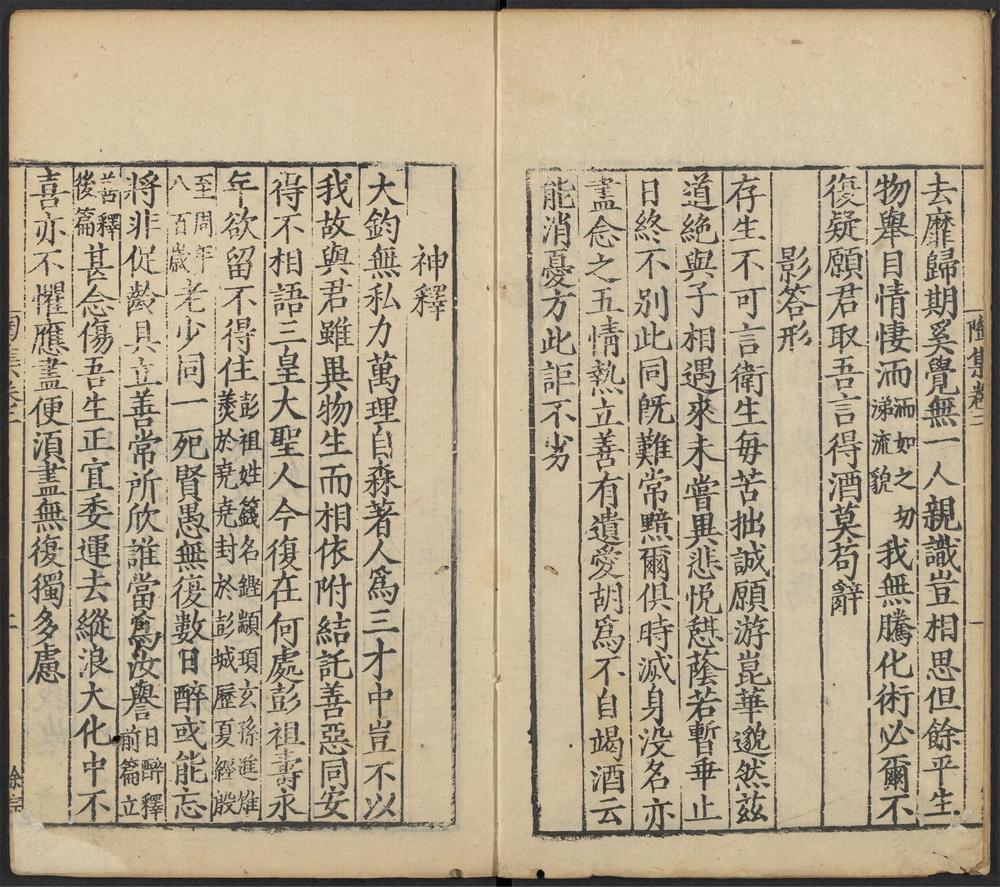 陶集卷二
一
去靡歸期奚覺無一人親識豈相思但餘平生
物舉目情悽洏洏如之切涕流貌我無騰化術必爾不
復疑願君取吾言得酒莫苟辭
影答形
存生不可言衛生每苦拙誠願游崑華邈然茲
道絶與子相遇來未嘗異悲悦憇蔭若暫乖止
日終不别此同既難常黯爾俱時滅身没名亦
盡念之五情熱立善有遺愛胡爲不自竭酒云
能消憂方此詎不劣
神釋
大鈞無私力萬理自森著人爲三才中豈不以
我故與君雖異物生而相依附結託善惡同安
得不相語三皇大聖人今復在何處彭祖壽永
年欲留不得住彭祖姓籛名鏗顓頊玄孫進雉羹於堯堯封於彭城歷夏經殷
至周年八百歲老少同一死賢愚無復數日醉或能忘
將非促齡具立善常所欣誰當爲汝譽日醉釋前篇立
善釋後篇甚念傷吾生正宜委運去縱浪大化中不
喜亦不懼應盡便須盡無復獨多慮
陶集卷二
二